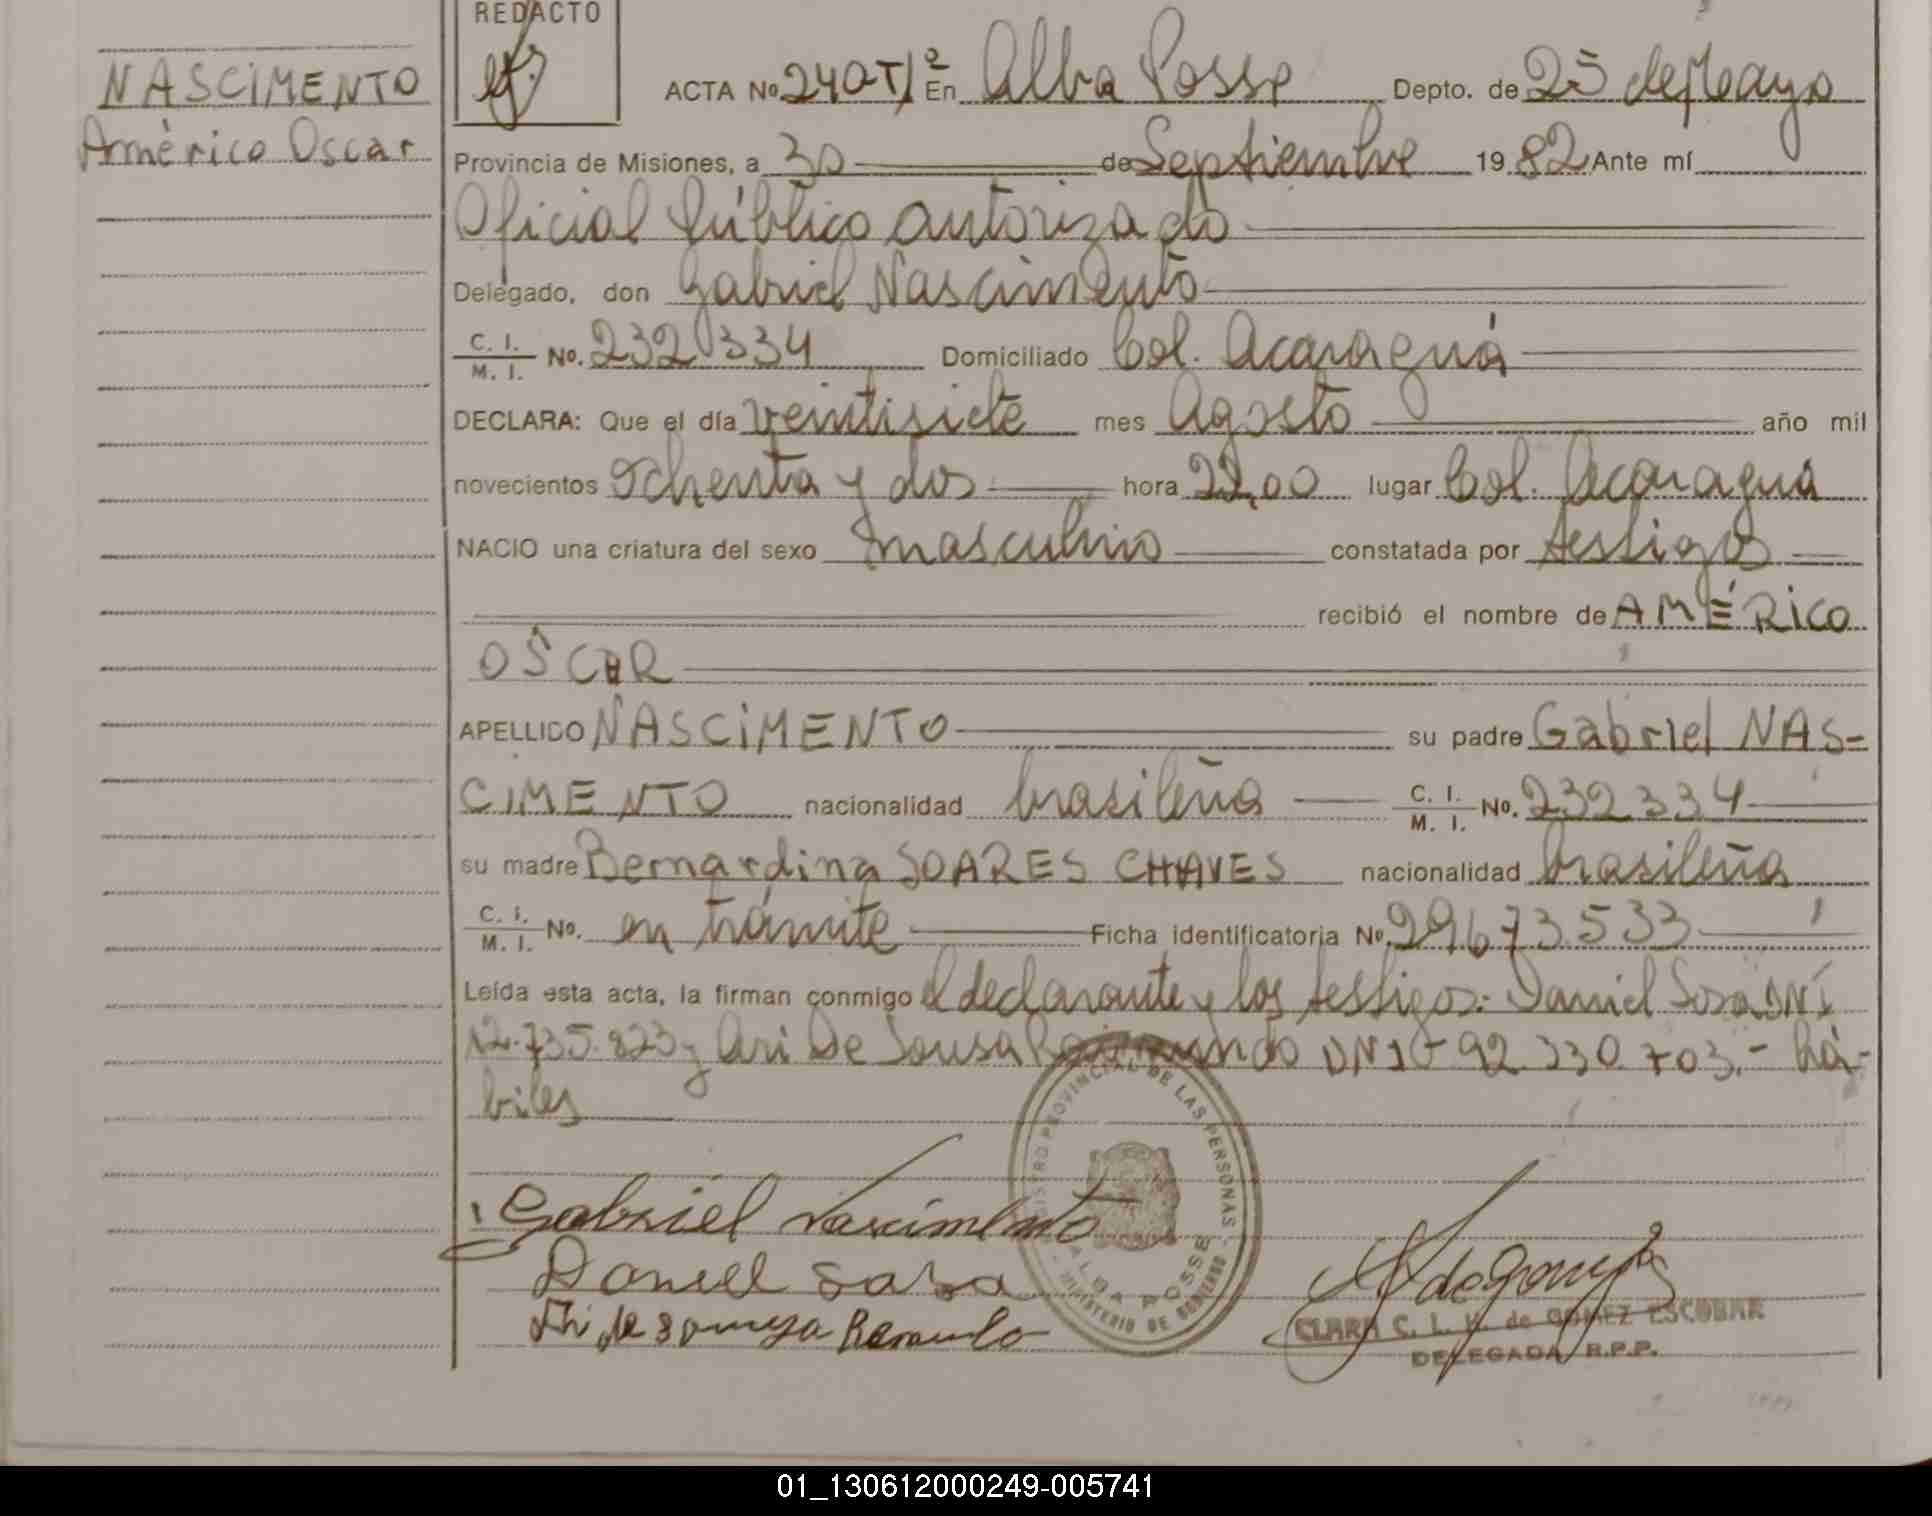 REDACTO
NASCIMENTO
Américo Oscar
ACTA No 240T1º En Alba Posse Depto. de 25 de Mayo
Provincia de Misiones, a 30 de Septiembre 1982 Ante mí
Oficial Público autorizado
Delegado, don Gabriel Nascimento
C. I. / M. I. No. 232334 Domiciliado Col. Acaraguá
DECLARA: Que el día veintisiete mes Agosto año mil
novecientos ochenta y dos hora 22,00 lugar Col. Acaraguá
NACIO una criatura del sexo masculino constatada por testigos
recibió el nombre de AMÉRICO
OSCAR
APELLIDO NASCIMENTO su padre Gabriel NAS-
CIMENTO nacionalidad brasileña C. I. / M. I. No. 232334
su madre Bernardina SOARES CHAVES nacionalidad brasileña
C. I. / M. I. No. en trámite Ficha identificatoria No. 29673533
Leída esta acta, la firman conmigo el declarante y los testigos: Daniel Sosa DNI
12.735.823 y Ari De Sousa DNI 92.330.703.- há-
biles
REGISTRO PROVINCIAL DE LAS PERSONAS
ALBA POSSE
MINISTERIO DE GOBIERNO
Gabriel Nascimento
Daniel Sosa
CLARA C. L. V. de GOMEZ ESCOBAR
DELEGADA R.P.P.
01_130612000249-005741